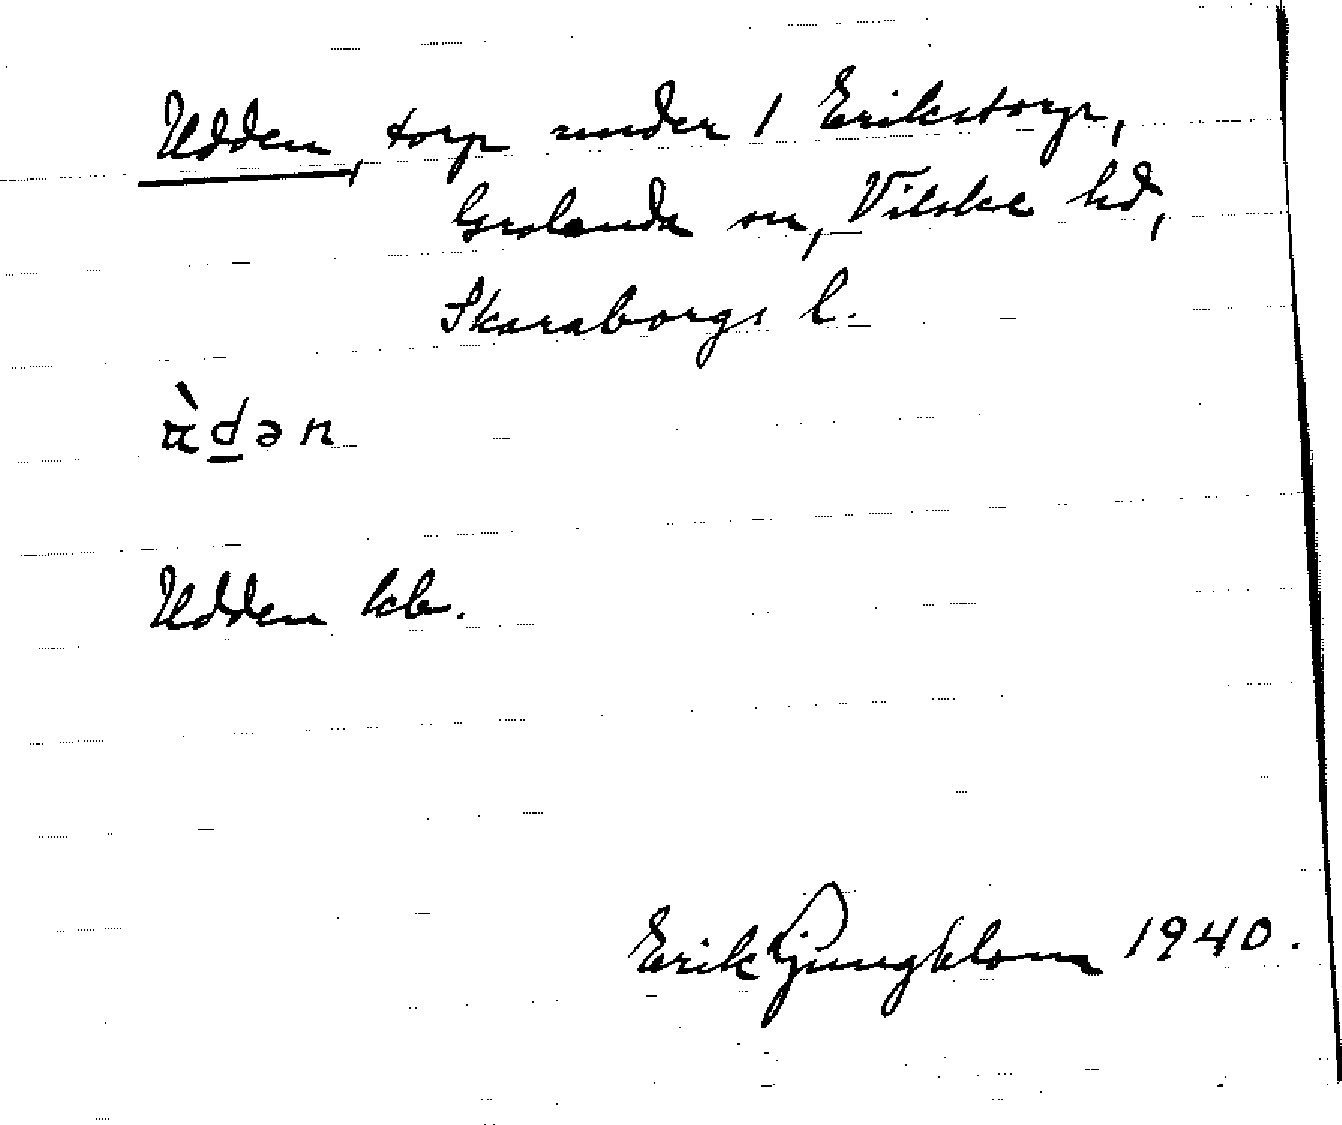 Udden, torp under 1 Erikstorp,
Grolanda sn, Vilske hd,
Skaraborgs l.
dən
Udden kb.
Erik Ljungblom 1940.